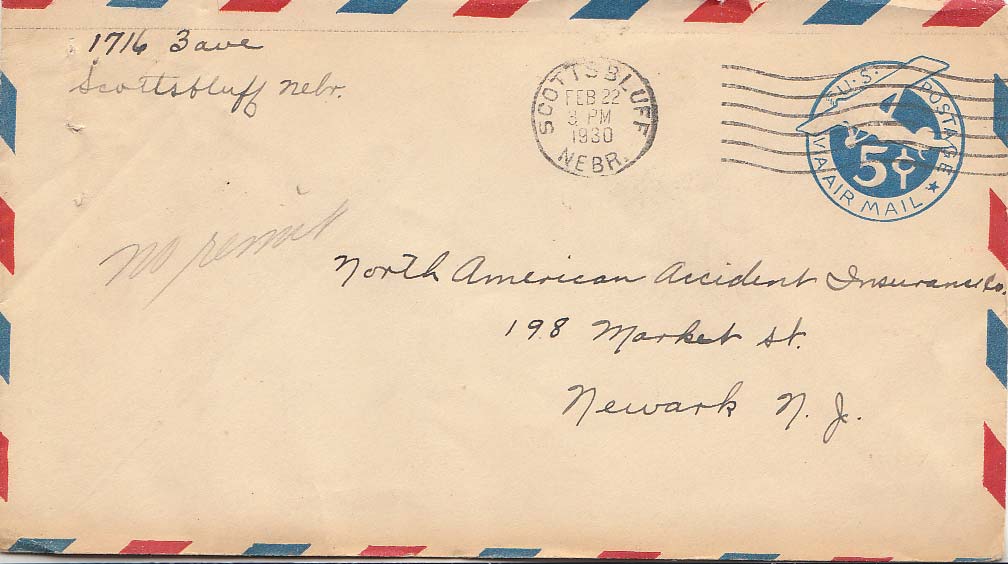 1716 3 ave
Scottsbluff Nebr.
SCOTTSBLUFF
FEB 22
3 PM
1930
NEBR.
U.S. POSTAGE
5¢
VIA AIR MAIL
no remit
North American Accident Insurance Co.
198 Market St.
Newark N. J.